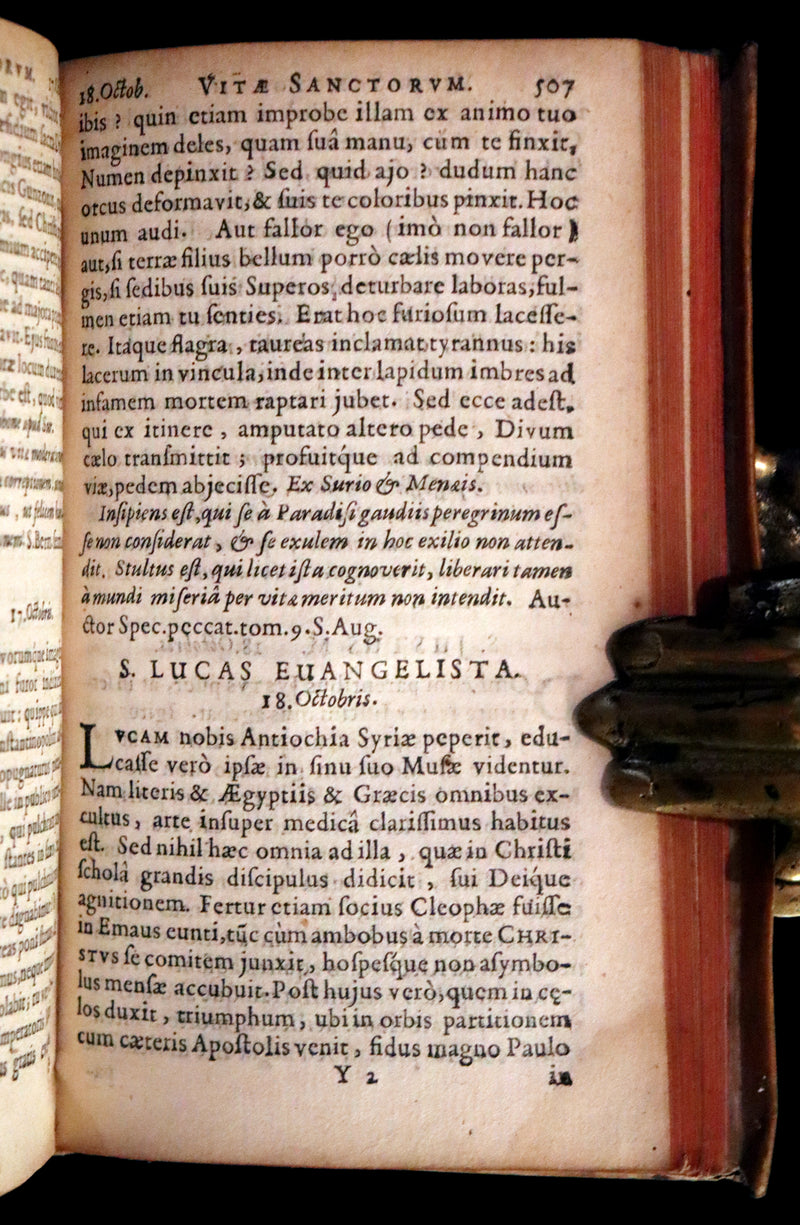 18.Octob. VITÆ SANCTORVM. 507
ibis ? quin etiam improbe illam ex animo tuo
imaginem deles, quam ſuâ manu, cum te finxit,
Numen depinxit ? Sed quid ajo ? dudum hanc
orcus deformavit, & ſuis te coloribus pinxit. Hoc
unum audi. Aut fallor ego (imò non fallor)
aut, ſi terræ filius bellum porrò cælis movere per-
gis, ſi ſedibus ſuis Superos deturbare laboras, ful-
men etiam tu ſenties. Erat hoc furioſum laceſſe-
re. Itaque flagra, taureas inclamat tyrannus : his
lacerum in vincula, inde inter lapidum imbres ad
infamem mortem raptari jubet. Sed ecce adeſt,
qui ex itinere, amputato altero pede, Divum
cælo tranſmittit ; profuitq́ue ad compendium
viæ, pedem abjeciſſe. Ex Surio & Menæis.
Inſipiens eſt, qui ſe à Paradiſi gaudiis peregrinum eſ-
ſe non conſiderat, & ſe exulem in hoc exilio non atten-
dit. Stultus eſt, qui licet iſta cognoverit, liberari tamen
à mundi miſeriâ per vitæ meritum non intendit. Au-
ctor Spec. peccat. tom. 9. S. Aug.
S. LUCAS EUANGELISTA.
18. Octobris.
LVCAM nobis Antiochia Syriæ peperit, edu-
caſſe verò ipſæ in ſinu ſuo Muſæ videntur.
Nam literis & Ægyptiis & Græcis omnibus ex-
cultus, arte inſuper medicâ clariſſimus habitus
eſt. Sed nihil hæc omnia ad illa, quæ in Chriſti
ſcholâ grandis diſcipulus didicit, ſui Deiq́ue
agnitionem. Fertur etiam ſocius Cleophæ fuiſſe
in Emaus eunti, tūc cùm ambobus à morte CHRI-
STVS ſe comitem junxit, hoſpeſq́ue non aſymbo-
lus menſæ accubuit. Poſt hujus verò, quem in cę-
los duxit, triumphum, ubi in orbis partitionem
cum cæteris Apoſtolis venit, fidus magno Paulo
Y 2 in
17. Octobris.